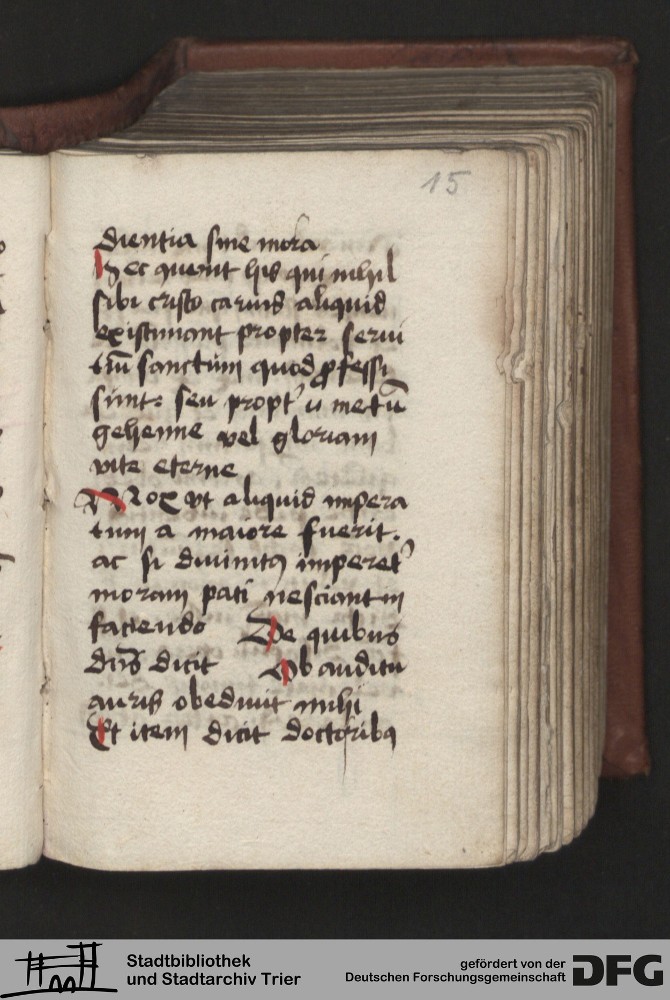 15
dientia sine mora
Hec quenit his qui nihil
sibi cristo carius aliquid
existimant propter serui
tiū sanctum quod ꝓfessi
sunt: seu propt᷑ metū
gehenne vel gloriam
vite eterne
Mox vt aliquid impera
tum a maiore fuerit.
ac si diuinitꝰ imperet᷑
moram pati nesciant in
faciendo De quibus
dn̄s dicit Ob auditu
auris obediuit mihi
Et item dicit doctoribꝰ
Stadtbibliothek
und Stadtarchiv Trier
gefördert von der
Deutschen Forschungsgemeinschaft
DFG